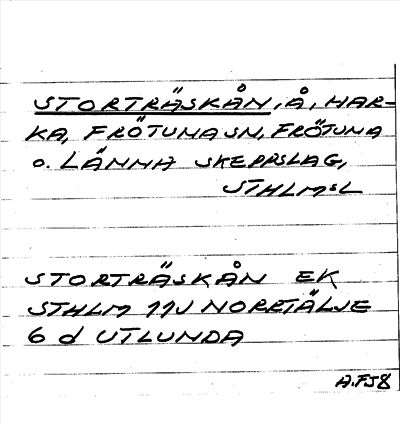 STORTRÄSKÅN, Å, HAR-
KA, FRÖTUNA SN, FRÖTUNA
o. LÄNNA SKEPPSLAG,
STHLMSL
STORTRÄSKÅN EK
STHLM 11J NORRTÄLJE
6 d UTLUNDA
A.F58